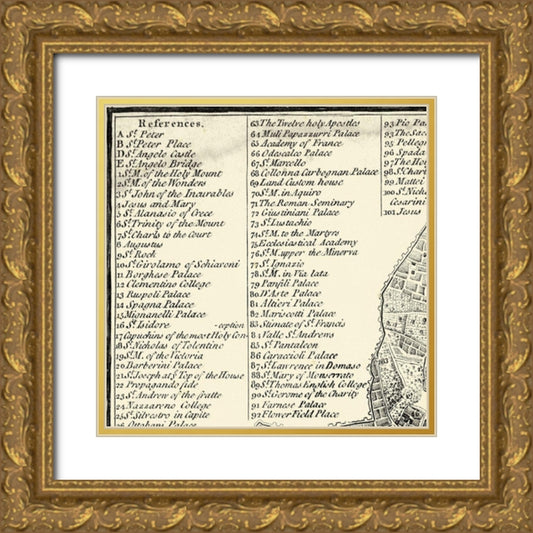 References.
A St. Peter
B St. Peter Place
D St. Angelo Castle
E St. Angelo Bridge
1 St. M. of the Holy Mount
2 St. M. of the Wonders
3 St. John of the Incurables
4 Jesus and Mary
5 St. Atanasio of Grece
6 St. Trinity of the Mount
7 St. Charls to the Court
8 Augustus
9 St. Rock
10 St. Girolamo of Schiavoni
11 Borghese Palace
12 Clementino College
13 Ruspoli Palace
14 Spagna Palace
15 Mignanelli Palace
16 St. Isidore -ception
17 Capuchins of the most Holy Con-
18 St. Nicholas of Tolentino
19 St. M. of the Victoria
20 Barberini Palace
21 St. Joseph at ye Top of the House
22 Propagando fide
23 St. Andrew of the fratte
24 Nazzareno College
25 St. Silvestro in Capite
26 Ottobani Palace
63 The Twelve holy Apostles
64 Muli Papazzurri Palace
65 Academy of France
66 Odescalco Palace
67 St. Marcello
68 Collonna Carbognan Palace
69 Land Custom house
70 St. M. in Aquiro
71 The Roman Seminary
72 Giustiniani Palace
73 St. Eustachio
74 St. M. to the Martyrs
75 Ecclesiastical Academy
76 St. M. upper the Minerva
77 St. Ignazio
78 St. M. in Via lata
79 Panfili Palace
80 D'Aste Palace
81 Altieri Palace
82 Mariscotti Palace
83 Stimate of St. Francis
84 Valle St. Andrens
85 St. Pantaleon
86 Caraccioli Palace
87 St. Lawrence in Domaso
88 St. Mary of Monserrate
89 St. Thomas English College
90 St. Gerome of the Charity
91 Farnese Palace
92 Flower Field Place
93 Pio Pa
93 The Sac
95 Pelleg
96 Spada
97 The Ho
98 St. Char
99 Mattei
100 St. Nich
Cesarini
101 Jesus